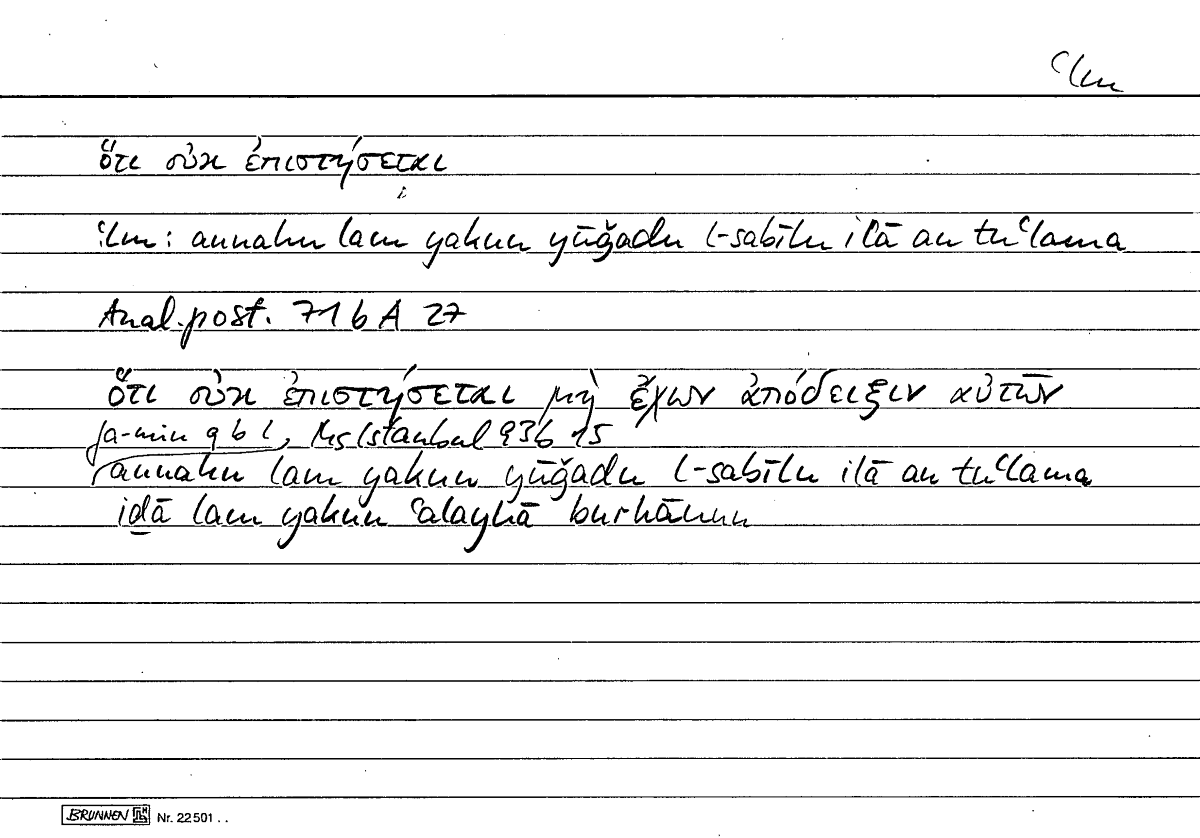 ʿlm
ὅτι οὐκ ἐπιστήσεται
ʿlm: annahu lam yakun yūǧadu l-sabīlu ilā an tuʿlama
Anal.post. 71 b A 27
ὅτι οὐκ ἐπιστήσεται μὴ ἔχων ἀπόδειξιν αὐτῶν
fa-min qbl, Ms Istanbul 936 15
annahu lam yakun yūǧadu l-sabīlu ilā an tuʿlama
iḏā lam yakun ʿalayhā burhānun
BRUNNEN Nr. 22501 ..